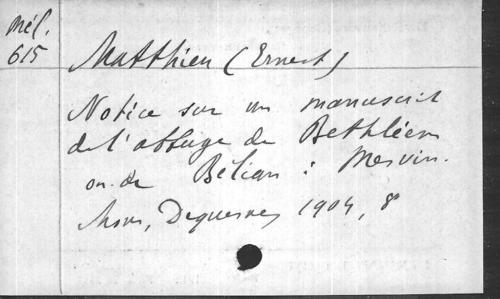 Mél.
615
Matthieu (Ernest)
Notice sur un manuscrit
de l'abbaye de Bethléem
ou de Bélian : Mesvin.
Mons, Dequesnes 1904, 8°